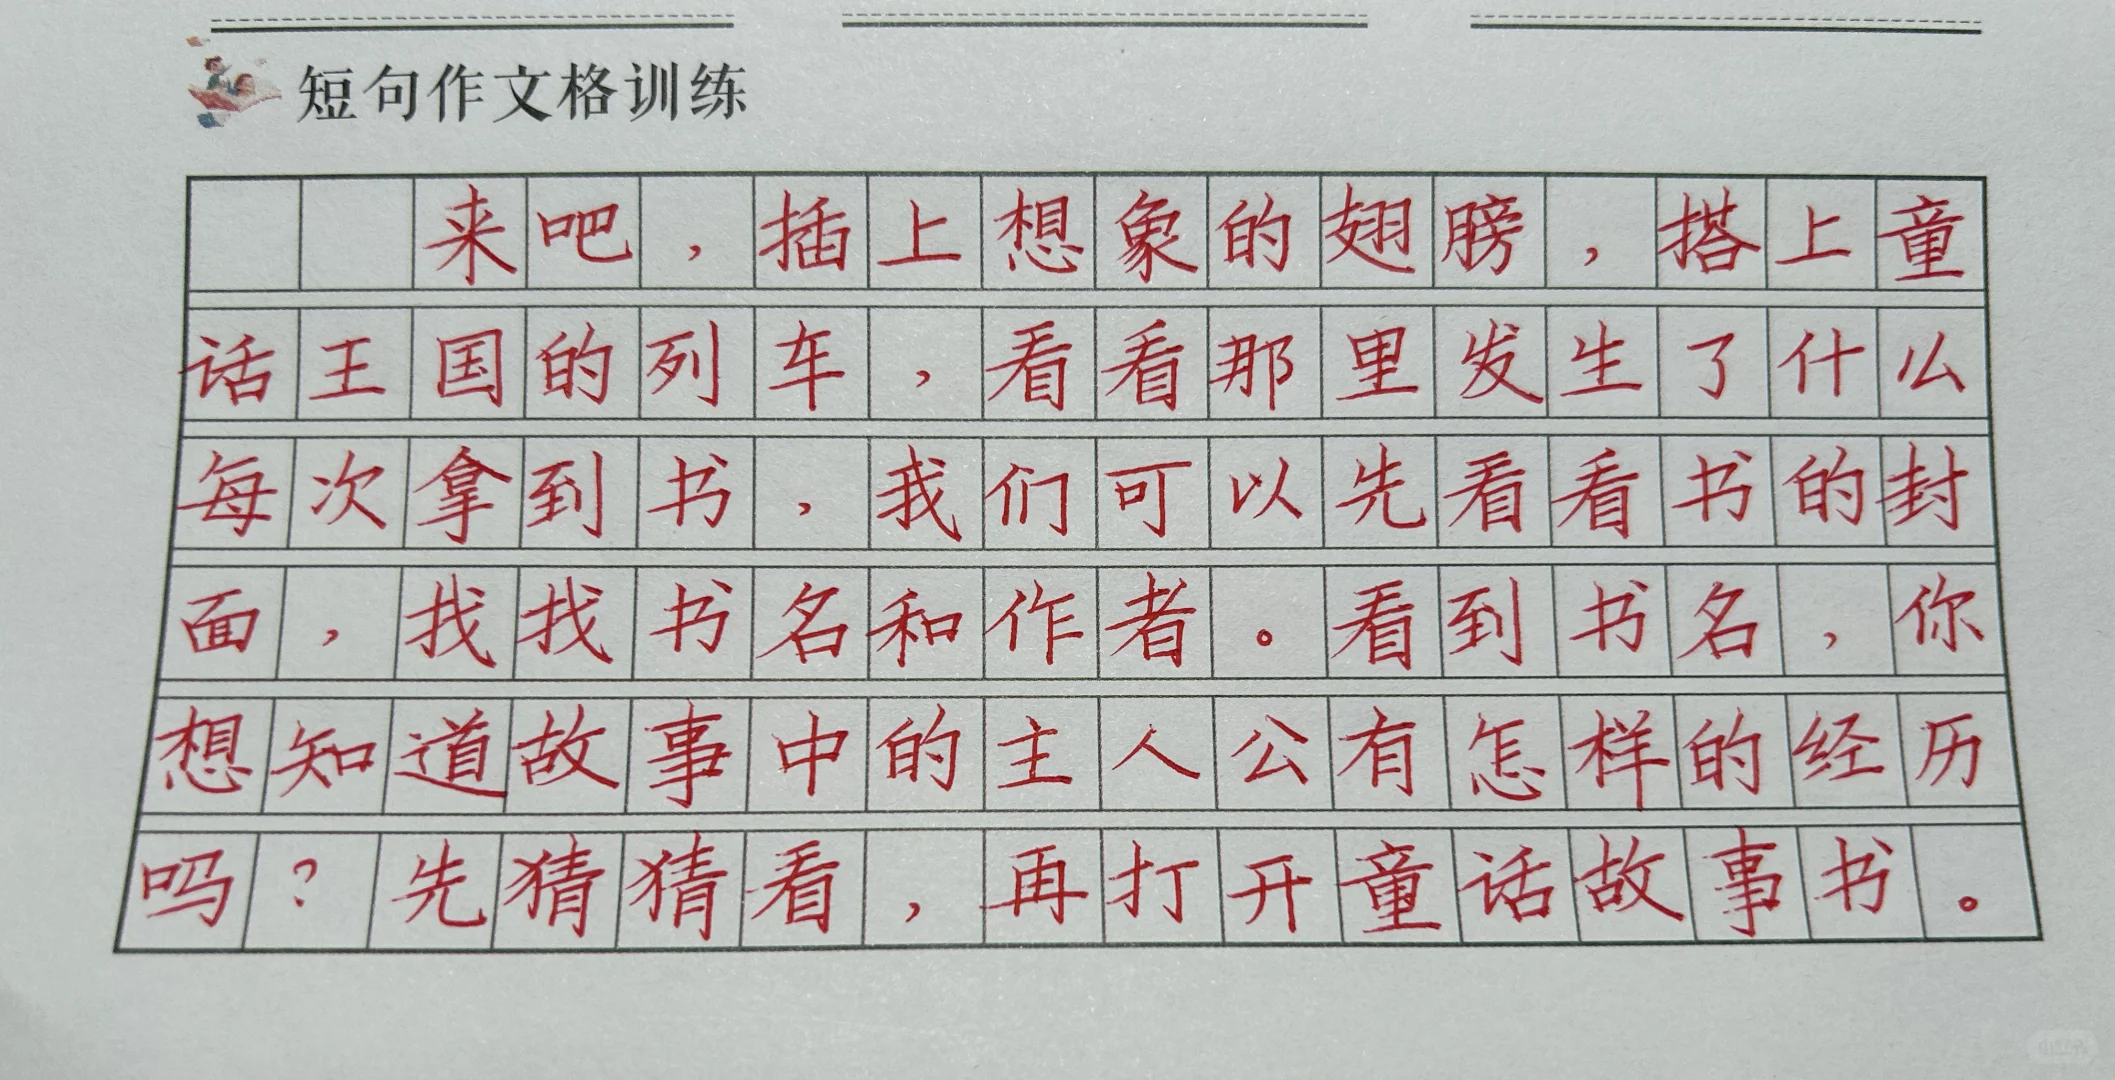 短句作文格训练
来吧，插上想象的翅膀，搭上童
话王国的列车，看看那里发生了什么
每次拿到书，我们可以先看看书的封
面，找找书名和作者。看到书名，你
想知道故事中的主人公有怎样的经历
吗？先猜猜看，再打开童话故事书。